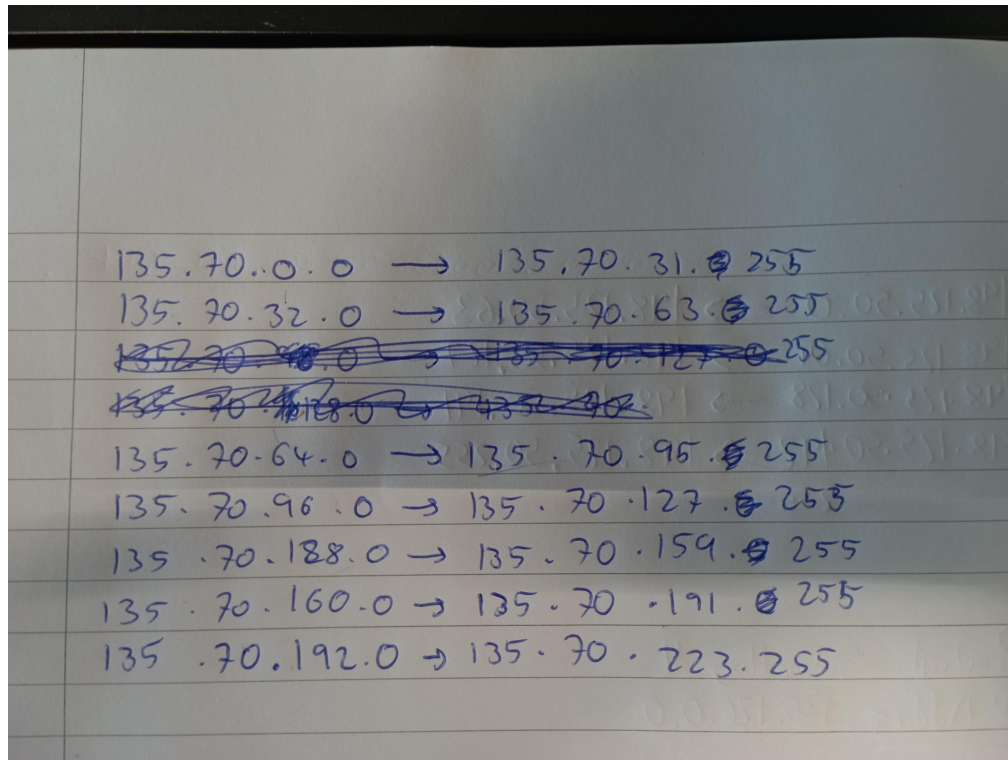 135.70.0.0 → 135.70.31.255
135.70.32.0 → 135.70.63.255
255
135.70.64.0 → 135.70.95.255
135.70.96.0 → 135.70.127.255
135.70.188.0 → 135.70.159.255
135.70.160.0 → 135.70.191.255
135.70.192.0 → 135.70.223.255